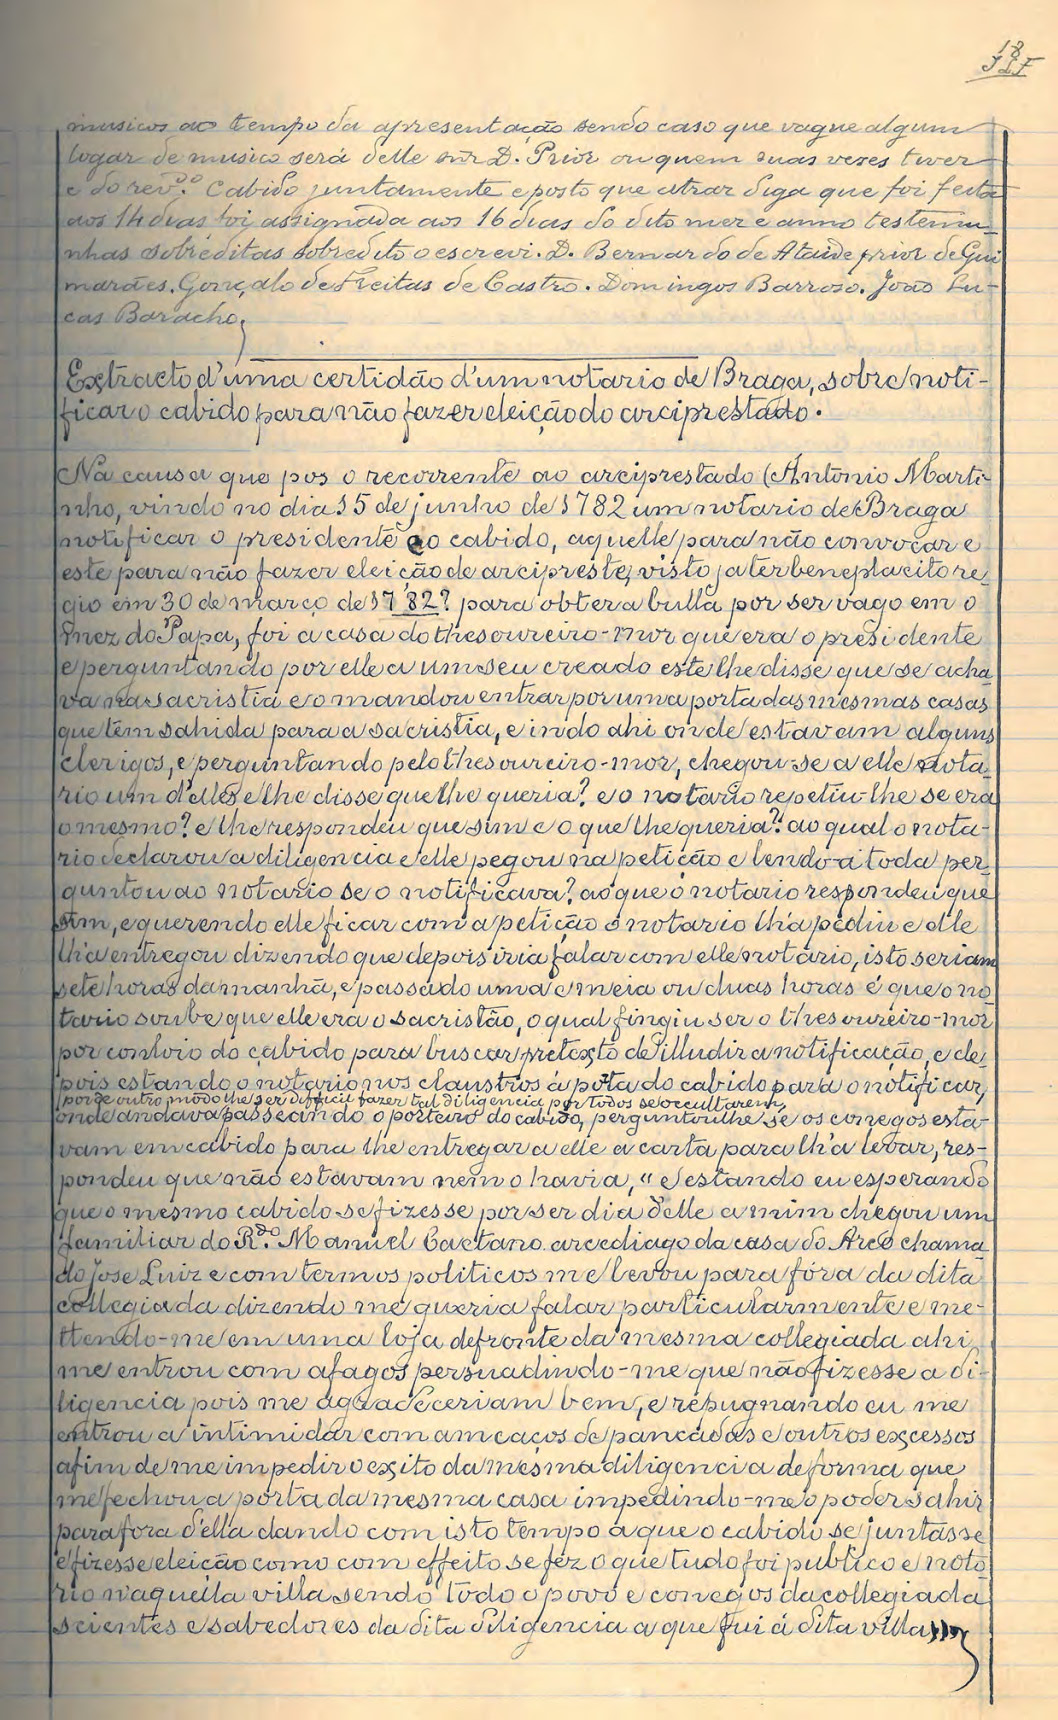 musicos ao tempo da apresentação sendo caso que vague algum
logar de musico será delle snr D. Prior ou quem suas vezes tiver
e do rev.do Cabido juntamente e posto que atraz diga que foi feita
aos 14 dias foi assignada aos 16 dias do dito mez e anno testemu-
nhas sobreditas sobredito o escrevi. D. Bernardo de Ataide prior de Gui
marães. Gonçalo de Freitas de Castro. Domingos Barrozo. João Lu-
cas Baracho
Extracto d'uma certidão d'um notario de Braga, sobre noti-
ficar o cabido para não fazer eleição do arciprestado.
Na causa que pos o recorrente ao arciprestado (Antonio Marti-
nho, vindo no dia 15 de junho de 1782 um notario de Braga
notificar o presidente e o cabido, aquelle para não convocar e
este para não fazer eleição de arcipreste, visto ja ter beneplacito re-
gio em 30 de março de 1782? para obter a bulla por ser vago em o
mez do Papa, foi a casa do thesoureiro-mor que era o presidente
e perguntando por elle a um seu creado este lhe disse que se acha-
va na sacristia e o mandou entrar por uma porta das mesmas casas
que têm sahida para a sacristia, e indo ahi onde estavam alguns
clerigos, e perguntando pelo thesoureiro-mor, chegou-se a elle nota-
rio um d'elles e lhe disse que lhe queria? e o notario repetiu-lhe se era
o mesmo? e lhe respondeu que sim e o que lhe queria? ao qual o nota-
rio declarou a diligencia e elle pegou na petição e lendo-a toda per-
guntou ao notario se o notificava? ao que o notario respondeu que
sim, e querendo elle ficar com a petição o notario lh'a pediu e elle
lh'a entregou dizendo que depois iria falar com elle notario, isto seriam
sete horas da manhã, e passado uma e meia ou duas horas é que o no-
tario soube que elle era o sacristão, o qual fingiu ser o thesoureiro-mor
por conloio do cabido para buscar pretexto de illudir a notificação, e de-
pois estando o notario nos claustros á pota do cabido para o notificar,
por de outro modo lhe ser difficil fazer tal diligencia por todos se occultarem,
onde andava passeando o porteiro do cabido, perguntou lhe se os conegos esta-
vam em cabido para lhe entregar a elle a carta para lh'a levar, res-
pondeu que não estavam nem o havia, "e estando eu esperando
que o mesmo cabido se fizesse por ser dia delle a mim chegou um
familiar do R.do Manuel Caetano arcediago da casa do Arco chama-
do Jose Luiz e com termos politicos me levou para fóra da dita
collegiada dizendo me queria falar particularmente e me-
ttendo-me em uma loja defronte da mesma collegiada ahi
me entrou com afagos persuadindo-me que não fizesse a di-
ligencia pois me agradeceriam bem, e repugnando eu me
entrou a intimidar com ameaços de pancadas e outros excessos
afim de me impedir o exito da mesma diligencia de forma que
me fechou a porta da mesma casa impedindo-me o poder sahir
para fora d'ella dando com isto tempo a que o cabido se juntasse
e fizesse eleição como com effeito se fez o que tudo foi publico e noto
rio naquella villa sendo todo o povo e conegos da collegiada
scientes e sabedores da dita diligencia a que fui á dita villa))